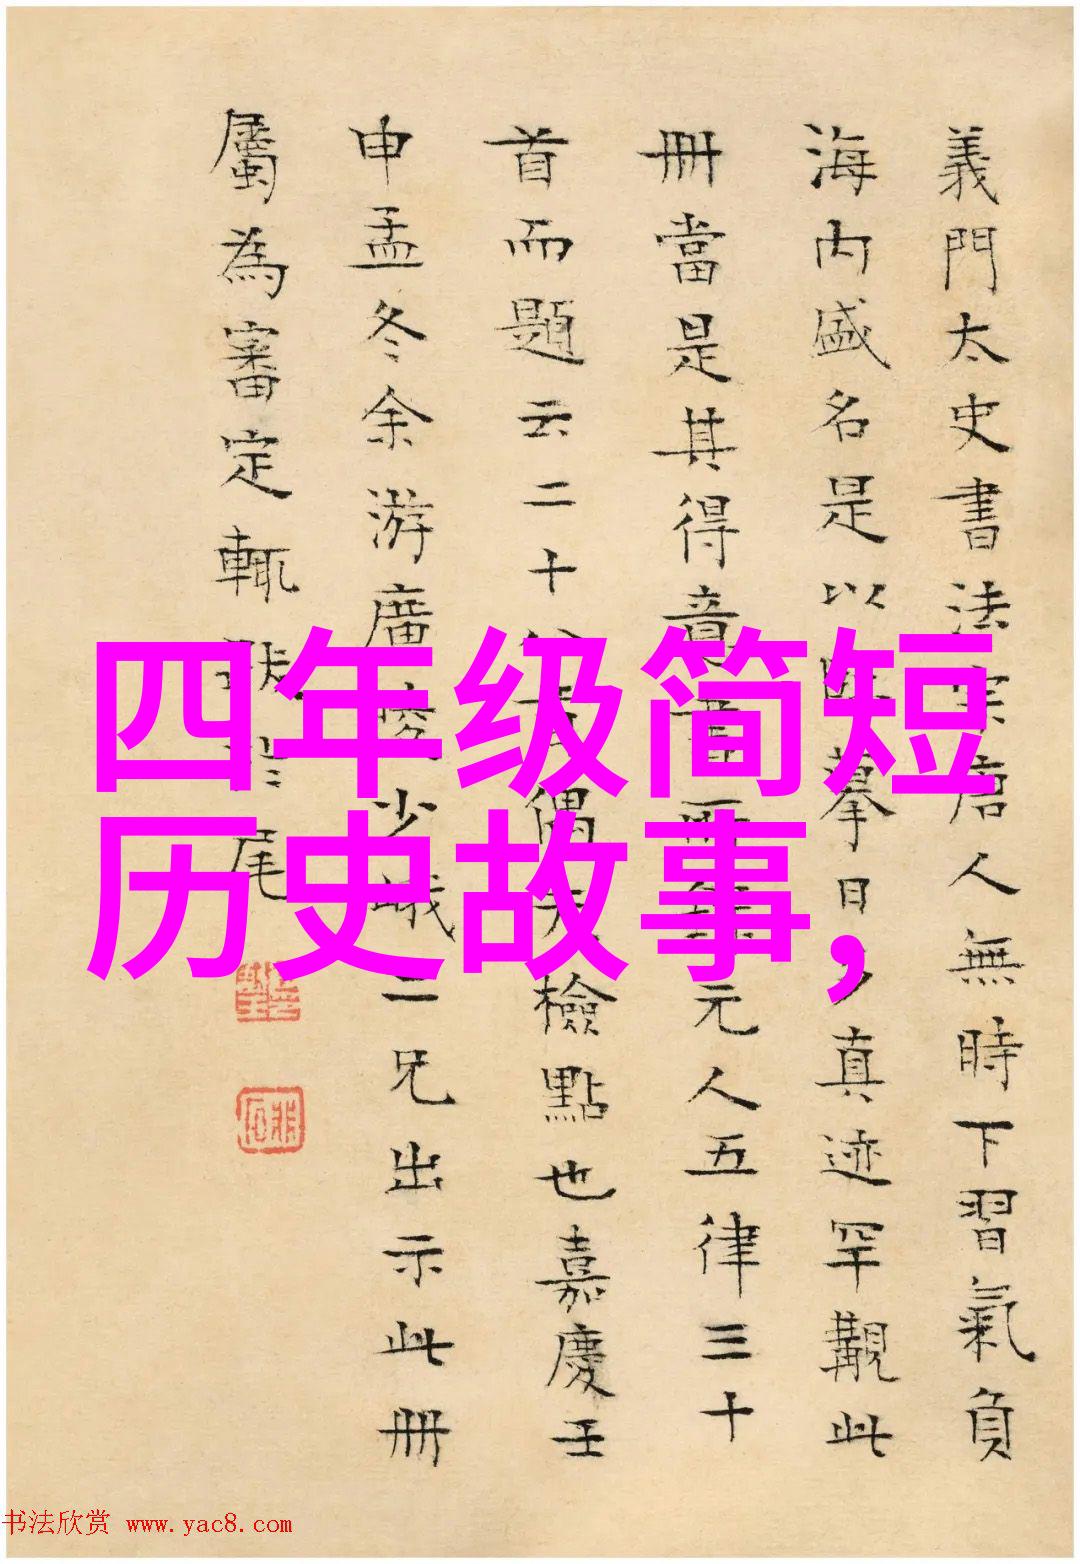 義門太史書法宗唐人無時下習氣負
海内盛名是以臨摹日夕真迹罕覯此
冊當是其得意書所錄元人五律三十
首而題云二十 偶失檢點也嘉慶壬
申孟冬余游廣陵少峨二兄出示此冊
屬為審定輒跋於尾
四年级简短
历史故事，
书法欣赏 www.yac8.com